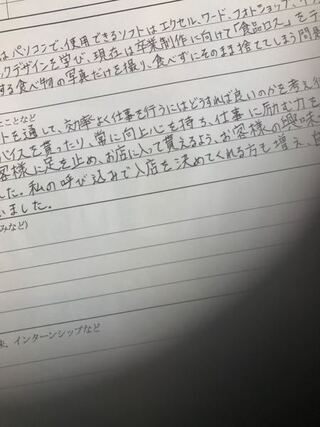 はパソコンで、使用できるソフトはエクセル、ワード、フォトショップ、
ックデザインを学び、現在は卒業制作に向けて「食品ロス」をテ
する食べ物の写真だけを撮り、食べずにそのまま捨ててしまう問題
ことなど
トを通して、効率よく仕事を行うにはどうすれば良いのかを考え行
バイスを貰ったり、常に向上心を持ち、仕事に励む力を
客様に足を止め、お店に入って貰えるよう、お客様の興味
した。私の呼び込みで入店を決めてくれる方も増え、
いました。
みなど)
インターンシップなど